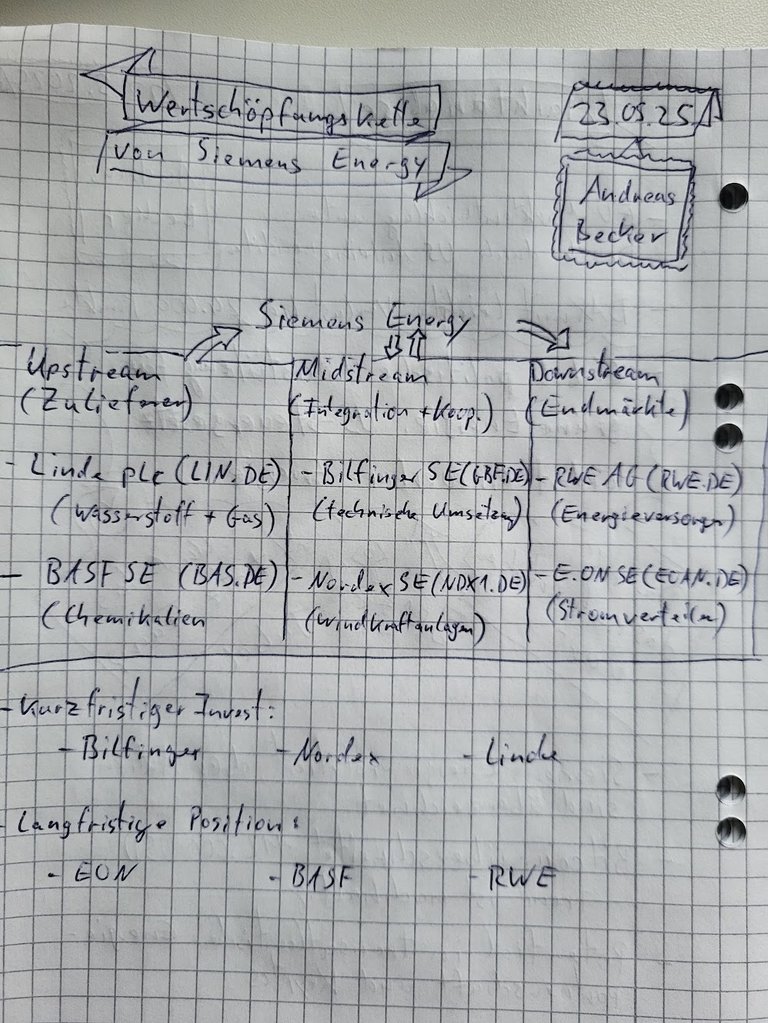 Wertschöpfungskette
von Siemens Energy
23.05.25
Andreas
Becker
Siemens Energy
Upstream
(Zulieferer)
- Linde plc (LIN.DE)
(Wasserstoff + Gas)
- BASF SE (BAS.DE)
(Chemikalien
Midstream
(Integration + Koop.)
- Bilfinger SE (GBF.DE)
(technische Umsetzung)
- Nordex SE (NDX1.DE)
(Windkraftanlagen)
Downstream
(Endmärkte)
- RWE AG (RWE.DE)
(Energieversorger)
- E.ON SE (EOAN.DE)
(Stromverteiler)
- Kurzfristiger Invest:
- Bilfinger - Nordex - Linde
- Langfristige Position:
- EON - BASF - RWE